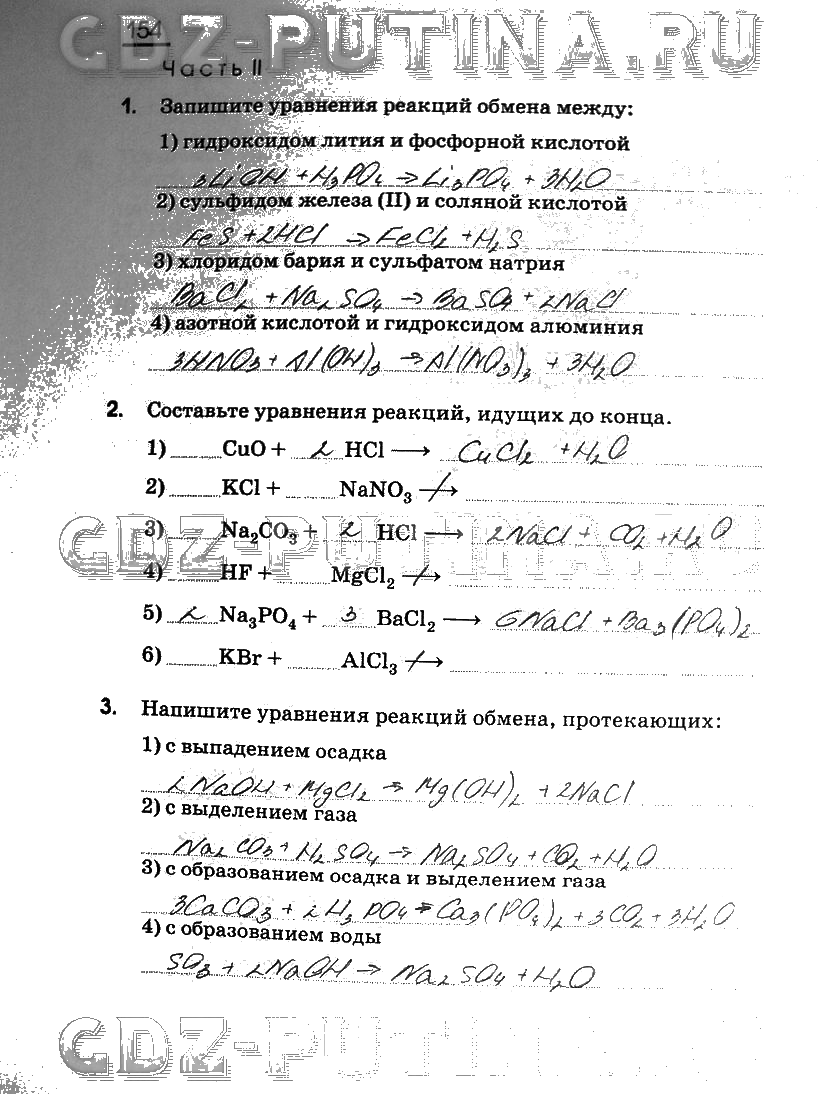 GDZ-PUTINA.RU
154
Часть II
1. Запишите уравнения реакций обмена между:
1) гидроксидом лития и фосфорной кислотой
3LiOH + H₃PO₄ → Li₃PO₄ + 3H₂O
2) сульфидом железа (II) и соляной кислотой
FeS + 2HCl → FeCl₂ + H₂S
3) хлоридом бария и сульфатом натрия
BaCl₂ + Na₂SO₄ → BaSO₄ + 2NaCl
4) азотной кислотой и гидроксидом алюминия
3HNO₃ + Al(OH)₃ → Al(NO₃)₃ + 3H₂O
2. Составьте уравнения реакций, идущих до конца.
1) CuO + 2 HCl → CuCl₂ + H₂O
2) KCl + NaNO₃ ↛
3) Na₂CO₃ + 2 HCl → 2NaCl + CO₂ + H₂O
4) HF + MgCl₂ ↛
5) 2 Na₃PO₄ + 3 BaCl₂ → 6NaCl + Ba₃(PO₄)₂
6) KBr + AlCl₃ ↛
3. Напишите уравнения реакций обмена, протекающих:
1) с выпадением осадка
2NaOH + MgCl₂ → Mg(OH)₂ + 2NaCl
2) с выделением газа
Na₂CO₃ + H₂SO₄ → Na₂SO₄ + CO₂ + H₂O
3) с образованием осадка и выделением газа
3CaCO₃ + 2H₃PO₄ = Ca₃(PO₄)₂ + 3CO₂ + 3H₂O
4) с образованием воды
SO₃ + 2NaOH → Na₂SO₄ + H₂O